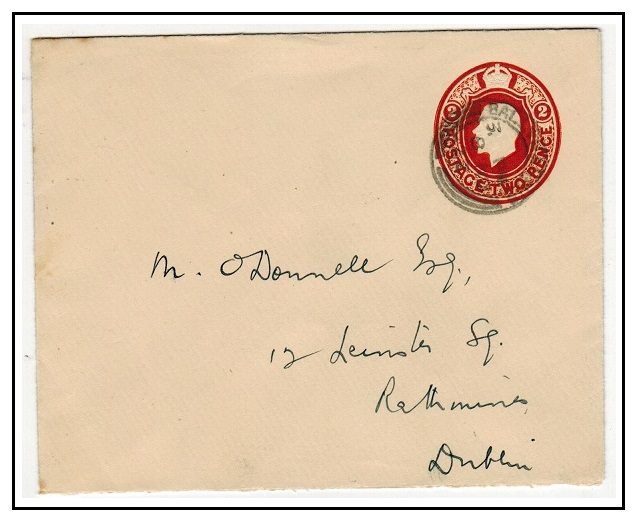 2 2
POSTAGE TWO PENCE
BAL
M. O'Donnell Esq.,
12 Leinster Sq.
Rathmines
Dublin